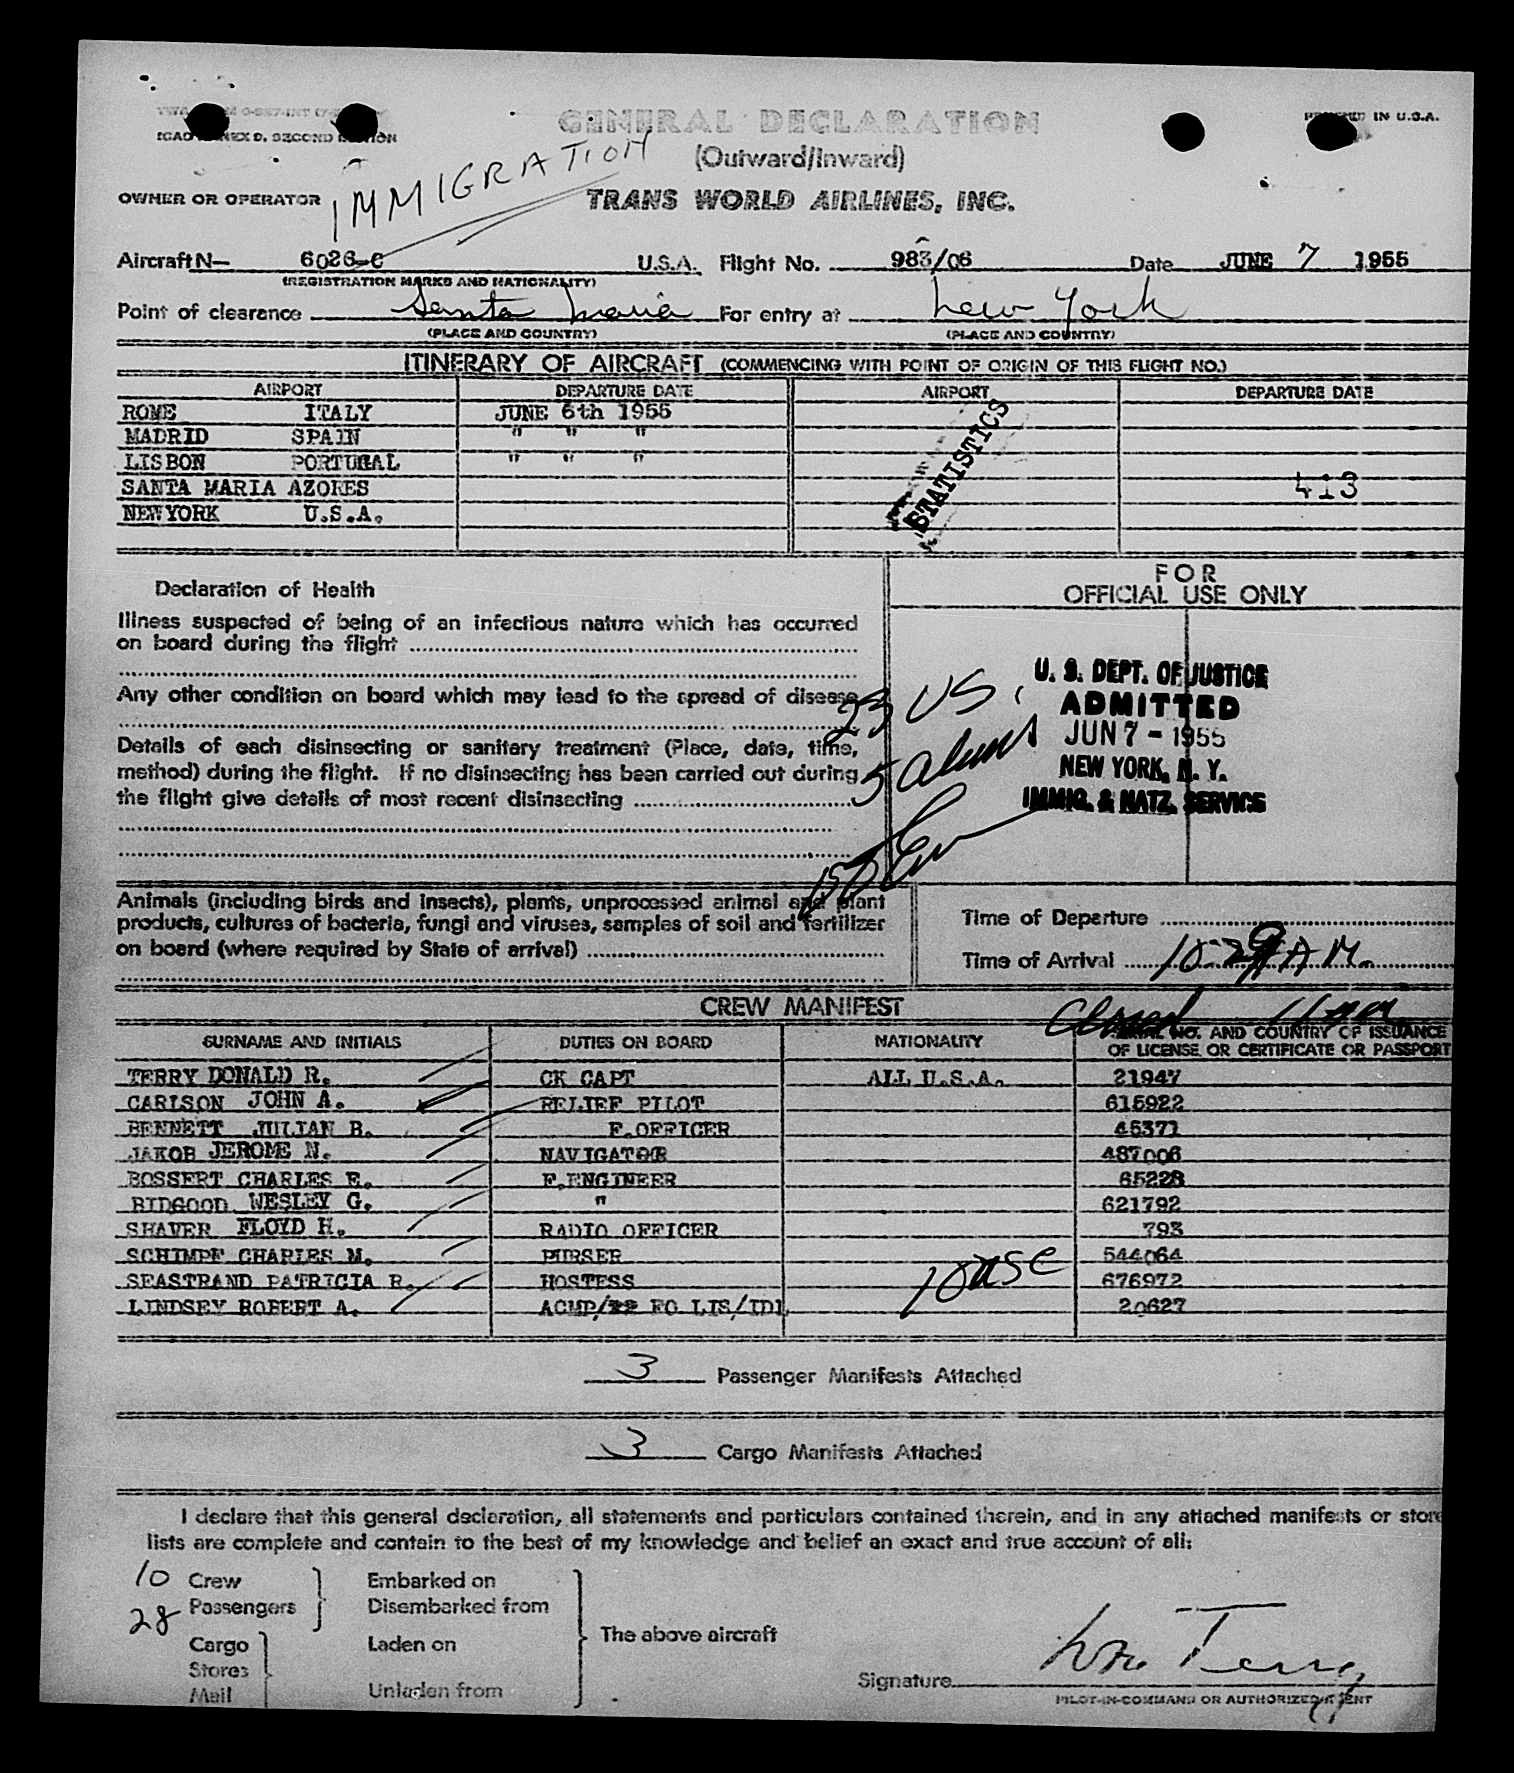 GENERAL DECLARATION
ICAO ANNEX 9, SECOND EDITION
IN U.S.A.
(Outward/Inward)
IMMIGRATION
OWNER OR OPERATOR
TRANS WORLD AIRLINES, INC.
Aircraft N- 6026-C U.S.A. Flight No. 983/06 Date JUNE 7 1955
(REGISTRATION MARKS AND NATIONALITY)
Point of clearance Santa Maria For entry at New York
(PLACE AND COUNTRY) (PLACE AND COUNTRY)
ITINERARY OF AIRCRAFT (COMMENCING WITH POINT OF ORIGIN OF THIS FLIGHT NO.)
AIRPORT DEPARTURE DATE AIRPORT DEPARTURE DATE
ROME ITALY JUNE 6th 1955
MADRID SPAIN " " "
LISBON PORTUGAL " " "
SANTA MARIA AZORES 413
NEW YORK U.S.A.
STATISTICS
Declaration of Health
FOR
OFFICIAL USE ONLY
Illness suspected of being of an infectious nature which has occurred
on board during the flight
Any other condition on board which may lead to the spread of disease
Details of each disinsecting or sanitary treatment (Place, date, time,
method) during the flight. If no disinsecting has been carried out during
the flight give details of most recent disinsecting
23 US.
5 aliens
U. S. DEPT. OF JUSTICE
ADMITTED
JUN 7 - 1955
NEW YORK, N. Y.
IMMIG. & NATZ. SERVICE
Animals (including birds and insects), plants, unprocessed animal and plant
products, cultures of bacteria, fungi and viruses, samples of soil and fertilizer
on board (where required by State of arrival)
Time of Departure
Time of Arrival 10-29 A M.
CREW MANIFEST
Closed
SURNAME AND INITIALS DUTIES ON BOARD NATIONALITY SERIAL NO. AND COUNTRY OF ISSUANCE
OF LICENSE OR CERTIFICATE OR PASSPORT
TERRY DONALD R. CK CAPT ALL U.S.A. 21947
CARLSON JOHN A. RELIEF PILOT 615922
BENNETT JULIAN B. F.OFFICER 45371
JAKOB JEROME N. NAVIGATOR 487006
BOSSERT CHARLES E. F.ENGINEER 65228
BIDGOOD WESLEY G. " 621792
SHAVER FLOYD H. RADIO OFFICER 793
SCHIMPF CHARLES M. PURSER 544064
SEASTRAND PATRICIA R. HOSTESS 676972
LINDSEY ROBERT A. ACMP/ FO LIS/IDL 20627
10 USC
3 Passenger Manifests Attached
3 Cargo Manifests Attached
I declare that this general declaration, all statements and particulars contained therein, and in any attached manifests or store
lists are complete and contain to the best of my knowledge and belief an exact and true account of all:
10 Crew Embarked on
28 Passengers Disembarked from
The above aircraft
Cargo Laden on
Stores
Mail Unladen from
Signature Don Terry
PILOT-IN-COMMAND OR AUTHORIZED AGENT